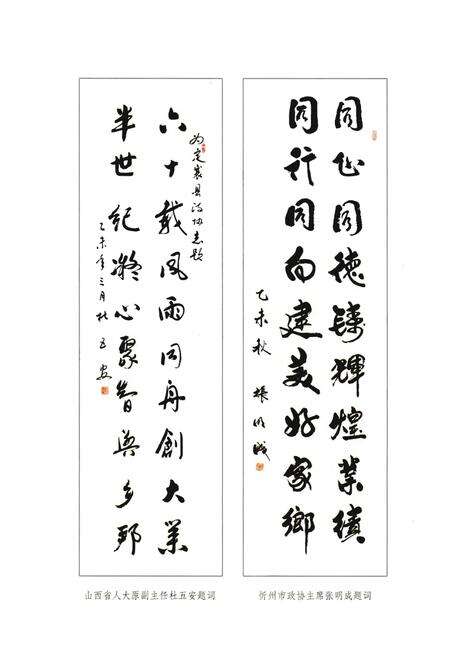 同心同德鑄輝煌業績
同行同向建美好家鄉
乙未秋 張明成
忻州市政协主席张明成题词
为定襄县政协志题
六十載風雨同舟創大業
半世紀凝心聚智興乡邦
乙未年三月杜五安
山西省人大原副主任杜五安题词